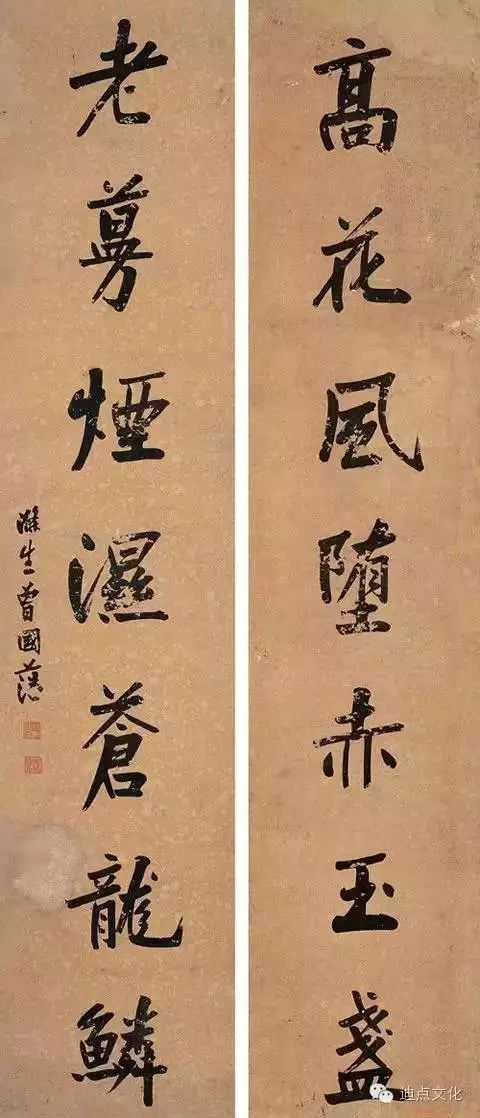 高花風堕赤玉盞
老蔓煙濕蒼龍鱗
滌生曾國藩
迪点文化